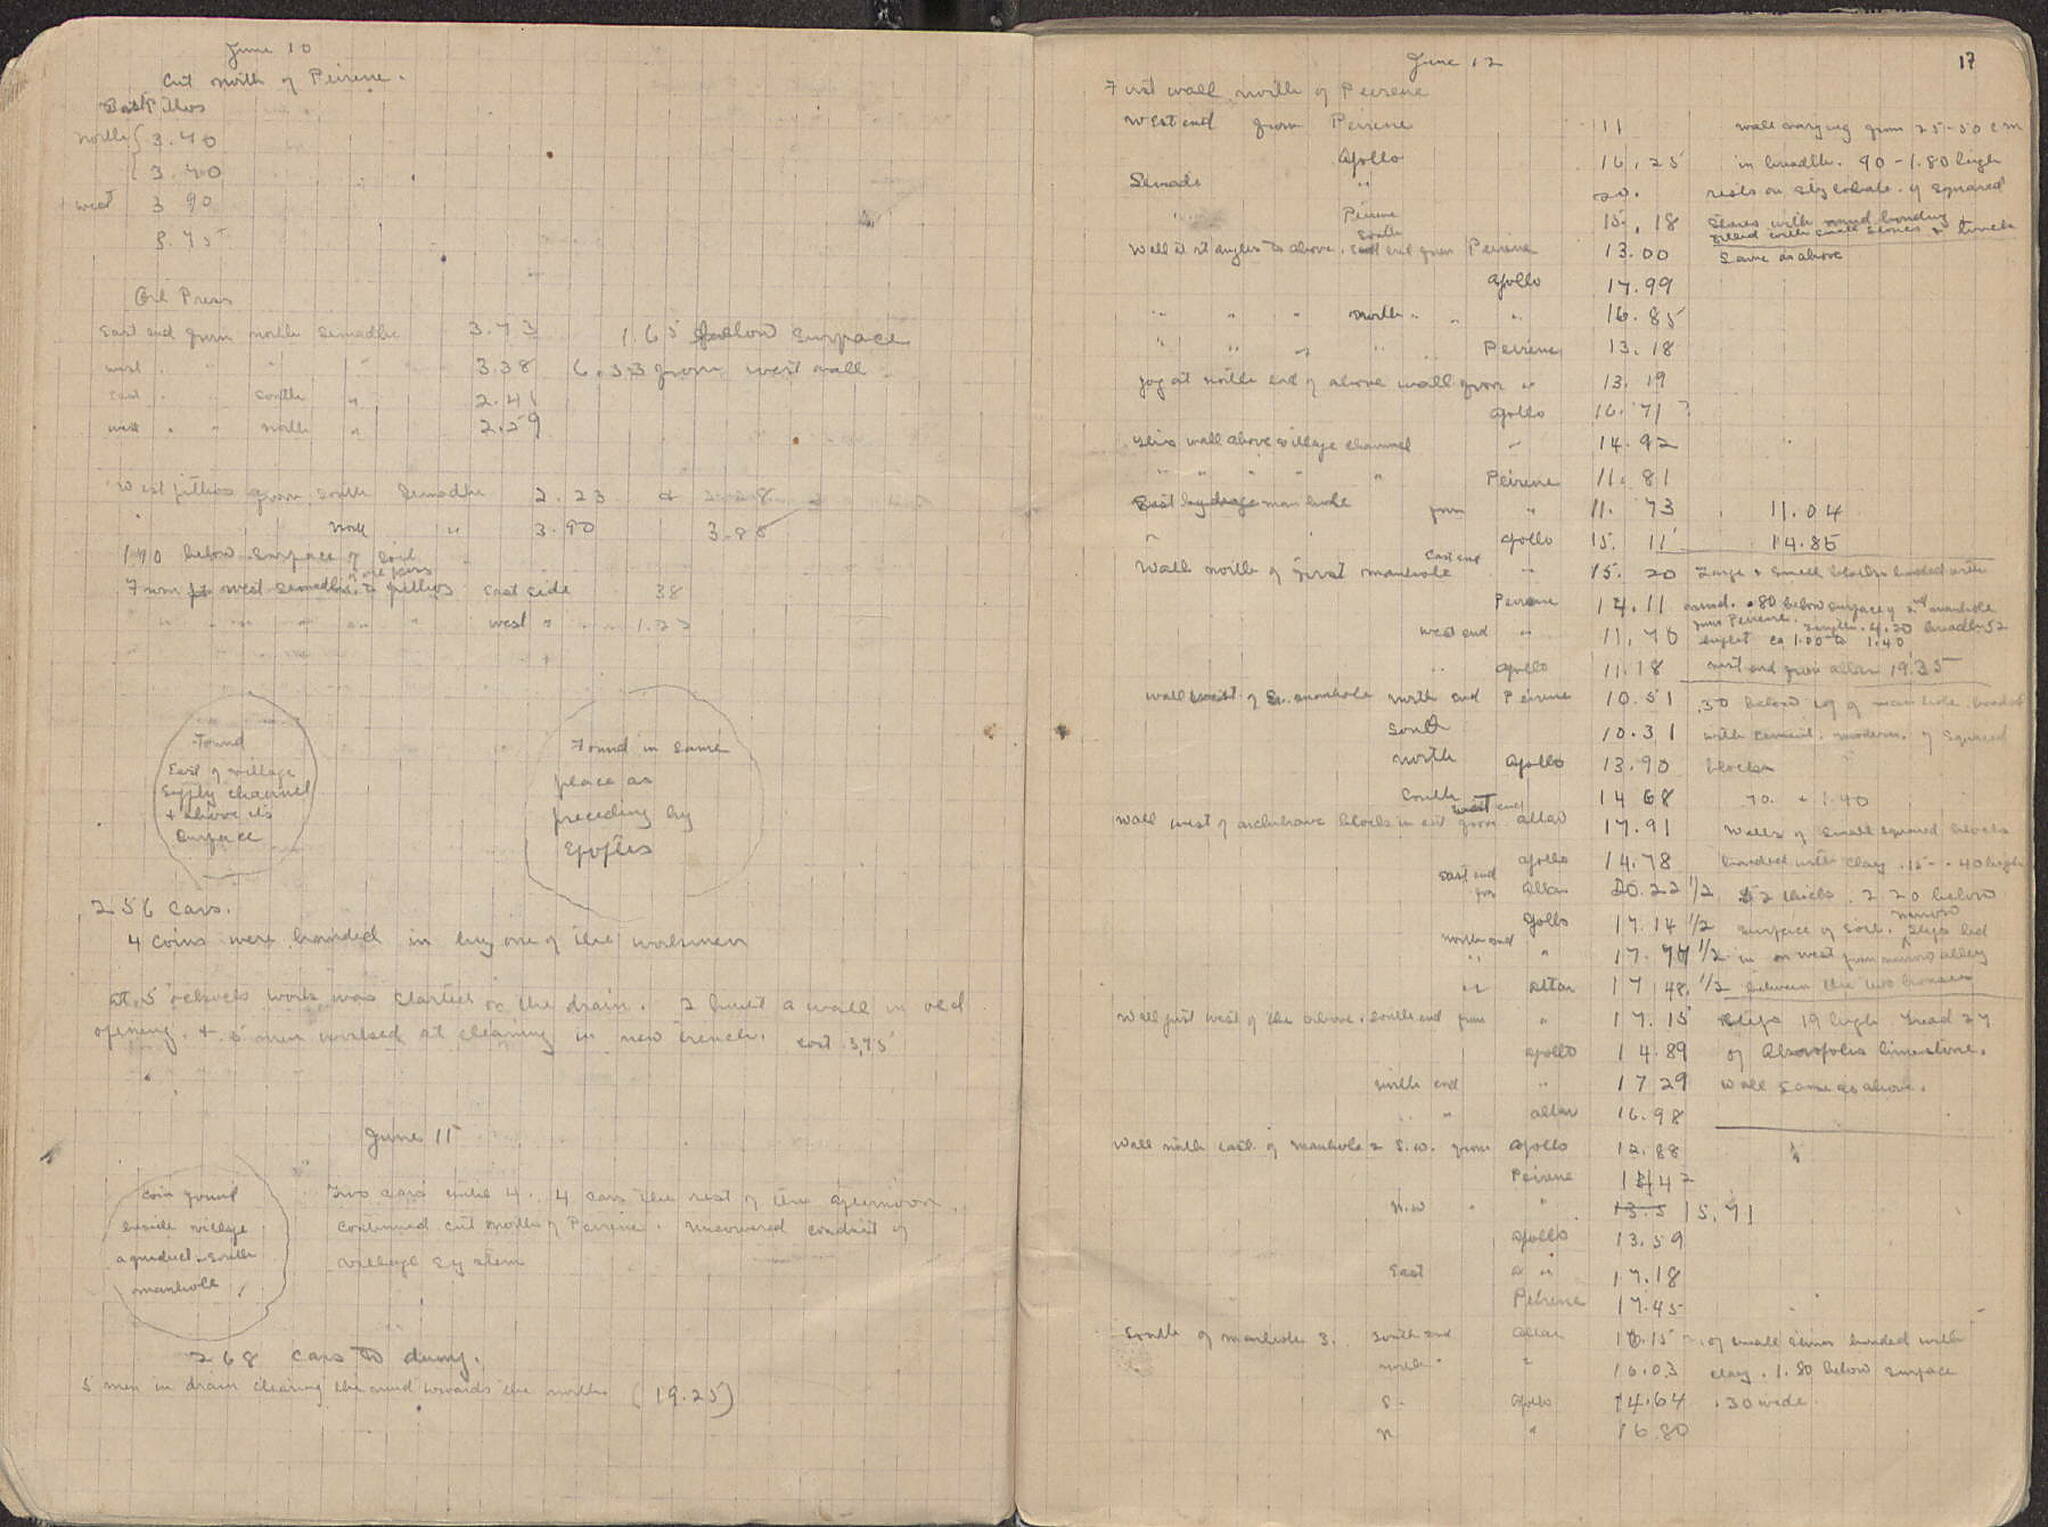 June 10
Cut north of Peirene.
East Pithos
North { 3.40
{ 3.40
west 3 90
3.75
Oil Press
East end from north Semadhe 3.73 1.65 below surface
west " " " " 3.38 6.33 from west wall
east " " south " 2.41
west " " north " 2.59
West pithos from south Semadhe 2.23 & 2.28
north " 3.90 3.88
1.40 below surface of soil
From west Semadhe to pithos east side 38
" " " " " west " 1.23
Found
East of village
supply channel
+ above its
surface
Found in same
place as
preceding by
256 cars.
4 coins were handed in by one of the workmen
At 5 oclock work was started on the drain. I built a wall in old
opening. + 5 men worked at cleaning in new trench. cost 3,75
June 11
Coin found
inside village
aquaduct. South
manhole
Two cars until 4. 4 cars the rest of the afternoon.
Continued cut north of Peirene. Uncovered conduit of
village system
268 cars to dump.
5 men in drain clearing the mud towards the north (19.25)
17
June 12
First wall north of Peirene
West end from Peirene 11 wall varying from 25-50 cm
Apollo 16.25 in breadth. 90-1.80 high
Semadi " 20. rests on stylobate of squared
" Peirene 15.18 stones with mud bonding &
filled with small stones &
Wall at rt angles to above. South end from Peirene 13.00 Same as above
Apollo 17.99
" " " north " " " 16.85
" " " " " Peirene 13.18
Jog at north end of above wall from " 13.19
Apollo 16.71 ?
This wall above village channel " 14.92
" " " " " Peirene 11.81
East manhole from " 11.73 11.04
" Apollo 15.11 14.85
Wall north of first manhole East end " 15.20 Large & small blocks bonded with
Peirene 14.11 mud. .80 below surface of 2nd manhole
West end " 11.70 from Peirene. length. 4.20 breadth 52
height ca 1.00 to 1.40
" Apollo 11.18 west end from altar 19.35
Wall west of S. manhole north end Peirene 10.51 .30 below top of manhole. bonded
South 10.31 with cement. modern. of squared
north Apollo 13.90 blocks
South 14 68 70. & 1.40
Wall west of architrave blocks in cut west end from altar 17.91 Walls of small squared blocks
Apollo 14.78 bonded with clay .15-.40 high
East end from Altar 20.22 1/2 52 thick. 2 20 below
Apollo 17.14 1/2 surface of soil. narrow steps led
north end " 17.77 1/2 in on west from narrow alley
" " Altar 17 48. 1/2 between the two houses
Wall just west of the above. South end from " 17.15 steps 19 high Tread 27
Apollo 14.89 of Akropolis limestone.
North end " 17 29 Wall same as above.
" " altar 16.98
Wall north east of manhole 2 S.W. from Apollo 12.88
Peirene 14 42
N.W " " 13.5 15.71
Apollo 13.59
East " " 17.18
Peirene 17.45
South of manhole 3. South end altar 16.15 of small stones bonded with
north " " 16.03 clay. 1.80 below surface
S. Apollo 14.64 .30 wide
N " 16 80